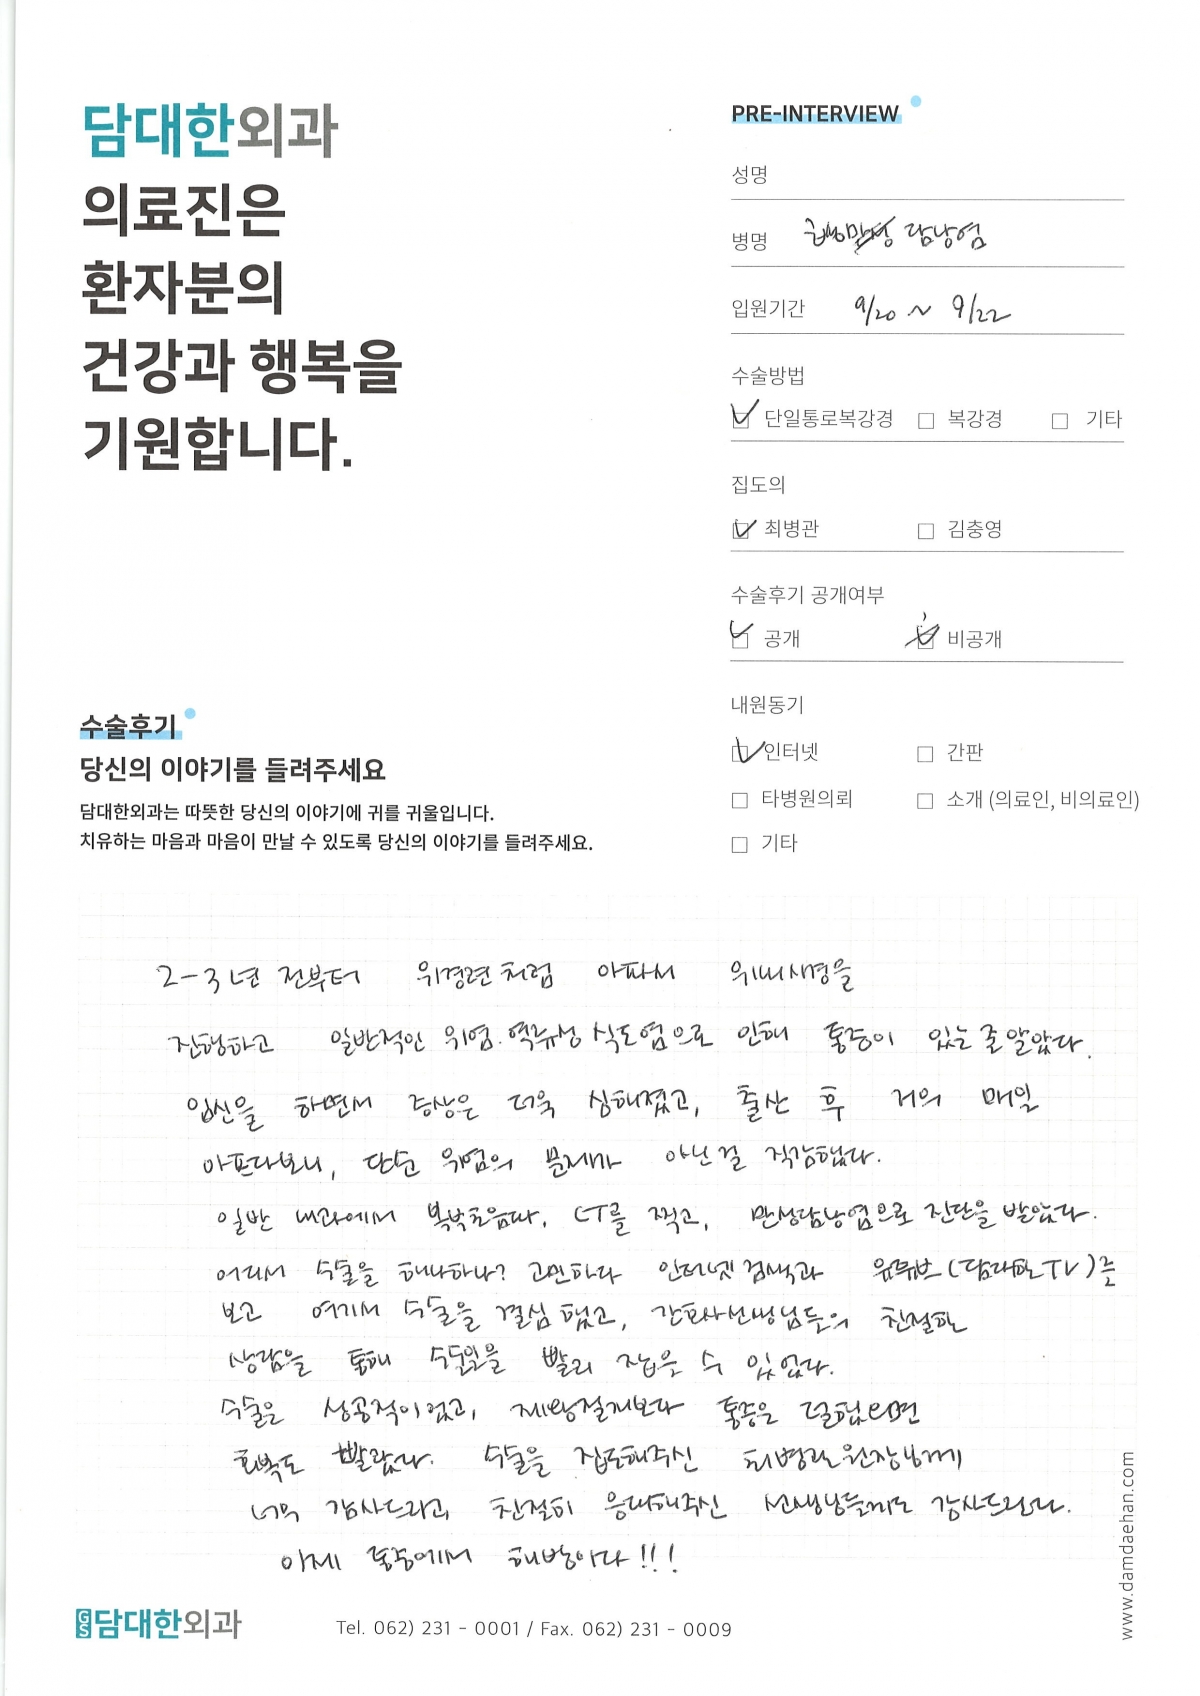 담대한외과
의료진은
환자분의
건강과 행복을
기원합니다.
PRE-INTERVIEW
성명
병명 담낭염
입원기간 9/20 ~ 9/22
수술방법
단일통로복강경 복강경 기타
집도의
최병관 김충영
수술후기 공개여부
공개 비공개
내원동기
인터넷 간판
타병원의뢰 소개 (의료인, 비의료인)
기타
수술후기
당신의 이야기를 들려주세요
담대한외과는 따뜻한 당신의 이야기에 귀를 귀울입니다.
치유하는 마음과 마음이 만날 수 있도록 당신의 이야기를 들려주세요.
2-3년 전부터 위경련처럼 아파서 위내시경을
진행하고 일반적인 위염. 역류성 식도염으로 인해 통증이 있는 줄 알았다.
임신을 하면서 증상은 더욱 심해졌고, 출산 후 거의 매일
아프다보니, 단순 위염의 문제가 아닌걸 직감했다.
일반 내과에서 복부초음파, CT를 찍고, 만성담낭염으로 진단을 받았다.
어디서 수술을 해야하나? 고민하다 인터넷 검색과 유튜브(담대한TV)를
보고 여기서 수술을 결심했고, 간호사선생님들의 친절한
상담을 통해 수술일을 빨리 잡을 수 있었다.
수술은 성공적이었고, 제왕절개보다 통증은 덜했으며
회복도 빨랐다. 수술을 집도해주신 최병관원장님께
너무 감사드리고, 친절히 응대해주신 선생님들께도 감사드린다.
이제 통증에서 해방이다!!!
GS담대한외과
Tel. 062) 231 - 0001 / Fax. 062) 231 - 0009
www.damdaehan.com